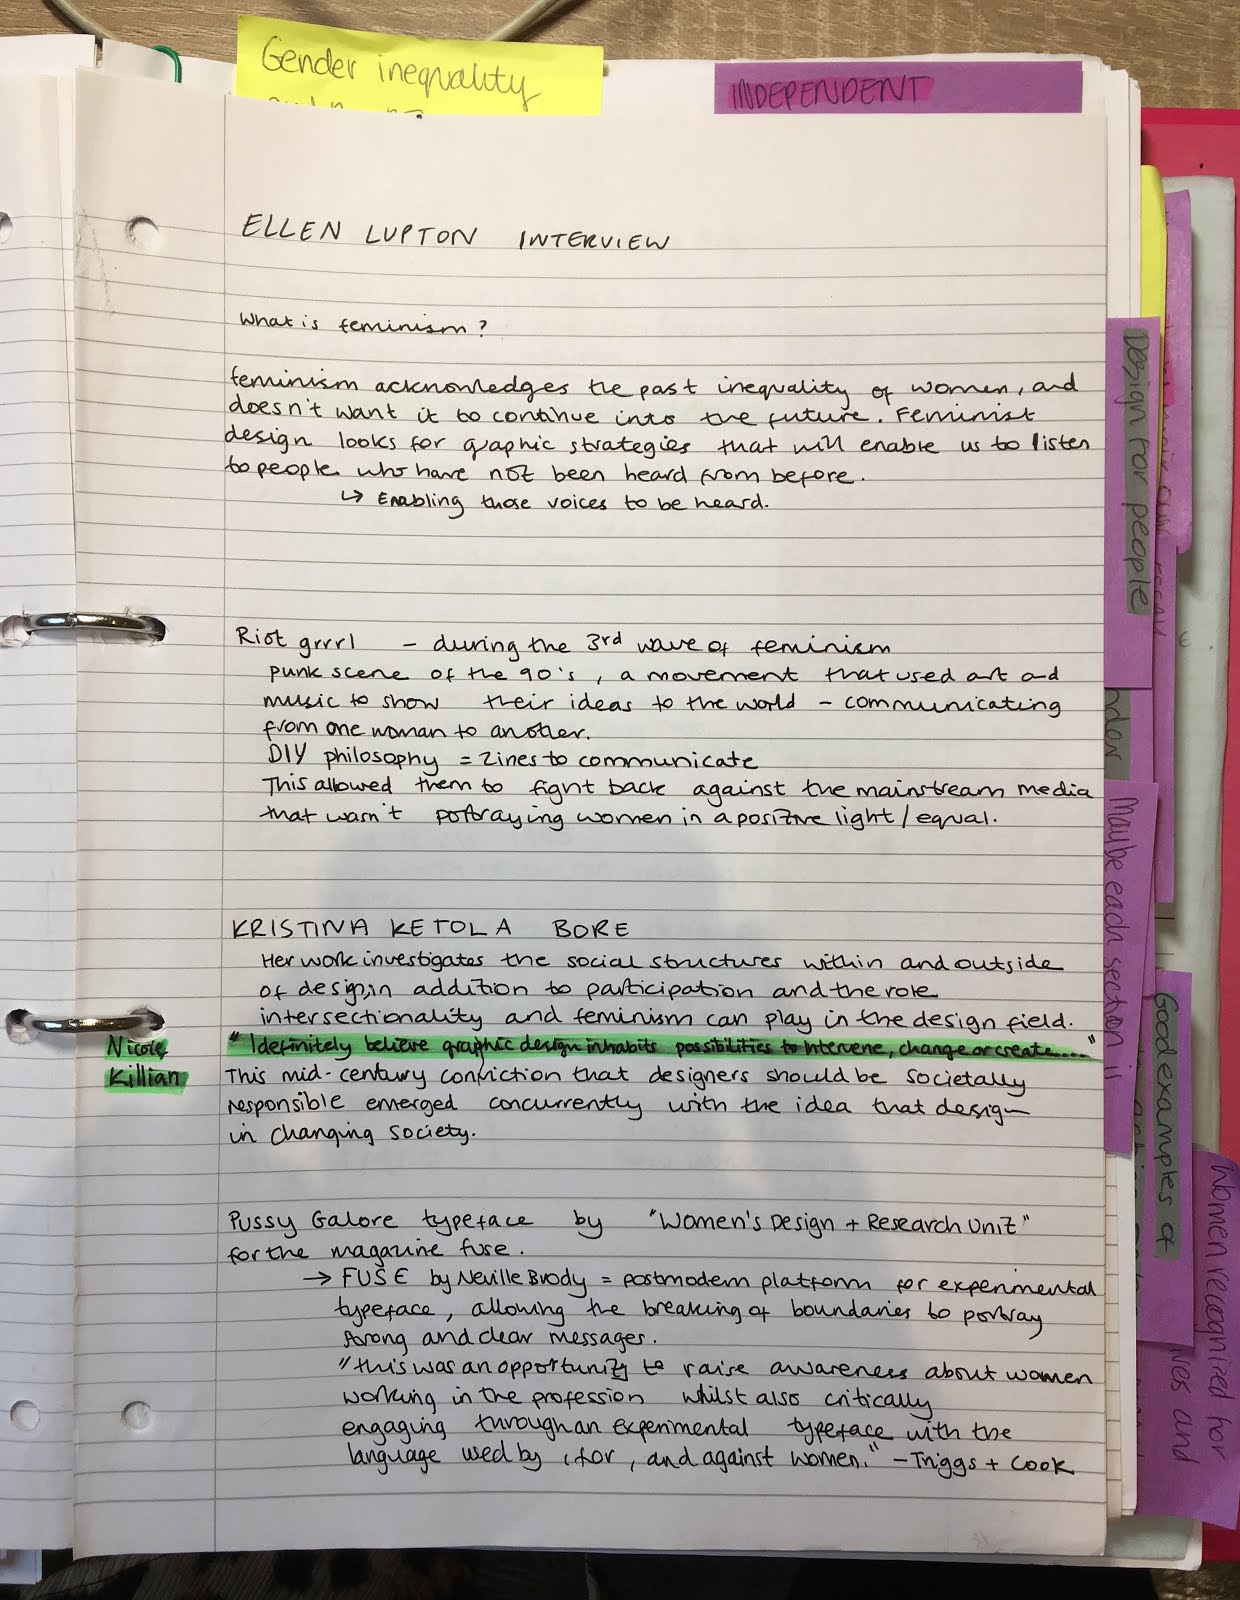 Gender inequality
INDEPENDENT
ELLEN LUPTON INTERVIEW
What is feminism?
feminism acknowledges the past inequality of women, and
doesn't want it to continue into the future. Feminist
design looks for graphic strategies that will enable us to listen
to people who have not been heard from before.
↳ Enabling those voices to be heard.
Riot grrrl - during the 3rd wave of feminism
punk scene of the 90's, a movement that used art and
music to show their ideas to the world - communicating
from one woman to another.
DIY philosophy = zines to communicate
This allowed them to fight back against the mainstream media
that wasn't portraying women in a positive light/equal.
KRISTINA KETOLA BORE
Her work investigates the social structures within and outside
of design, in addition to participation and the role
intersectionality and feminism can play in the design field.
Nicole
Killian
"I definitely believe graphic design inhabits possibilities to intervene, change or create....."
This mid-century conviction that designers should be societally
responsible emerged concurrently with the idea that design
in changing society.
Pussy Galore typeface by "Women's Design + Research Unit"
for the magazine fuse.
→ FUSE by Neville Brody = postmodern platform for experimental
typeface, allowing the breaking of boundaries to portray
strong and clear messages.
"this was an opportunity to raise awareness about women
working in the profession whilst also critically
engaging through an experimental typeface with the
language used by, for, and against women." - Triggs + Cook
Design for people
Maybe each section is
Good examples of
Women recognized for